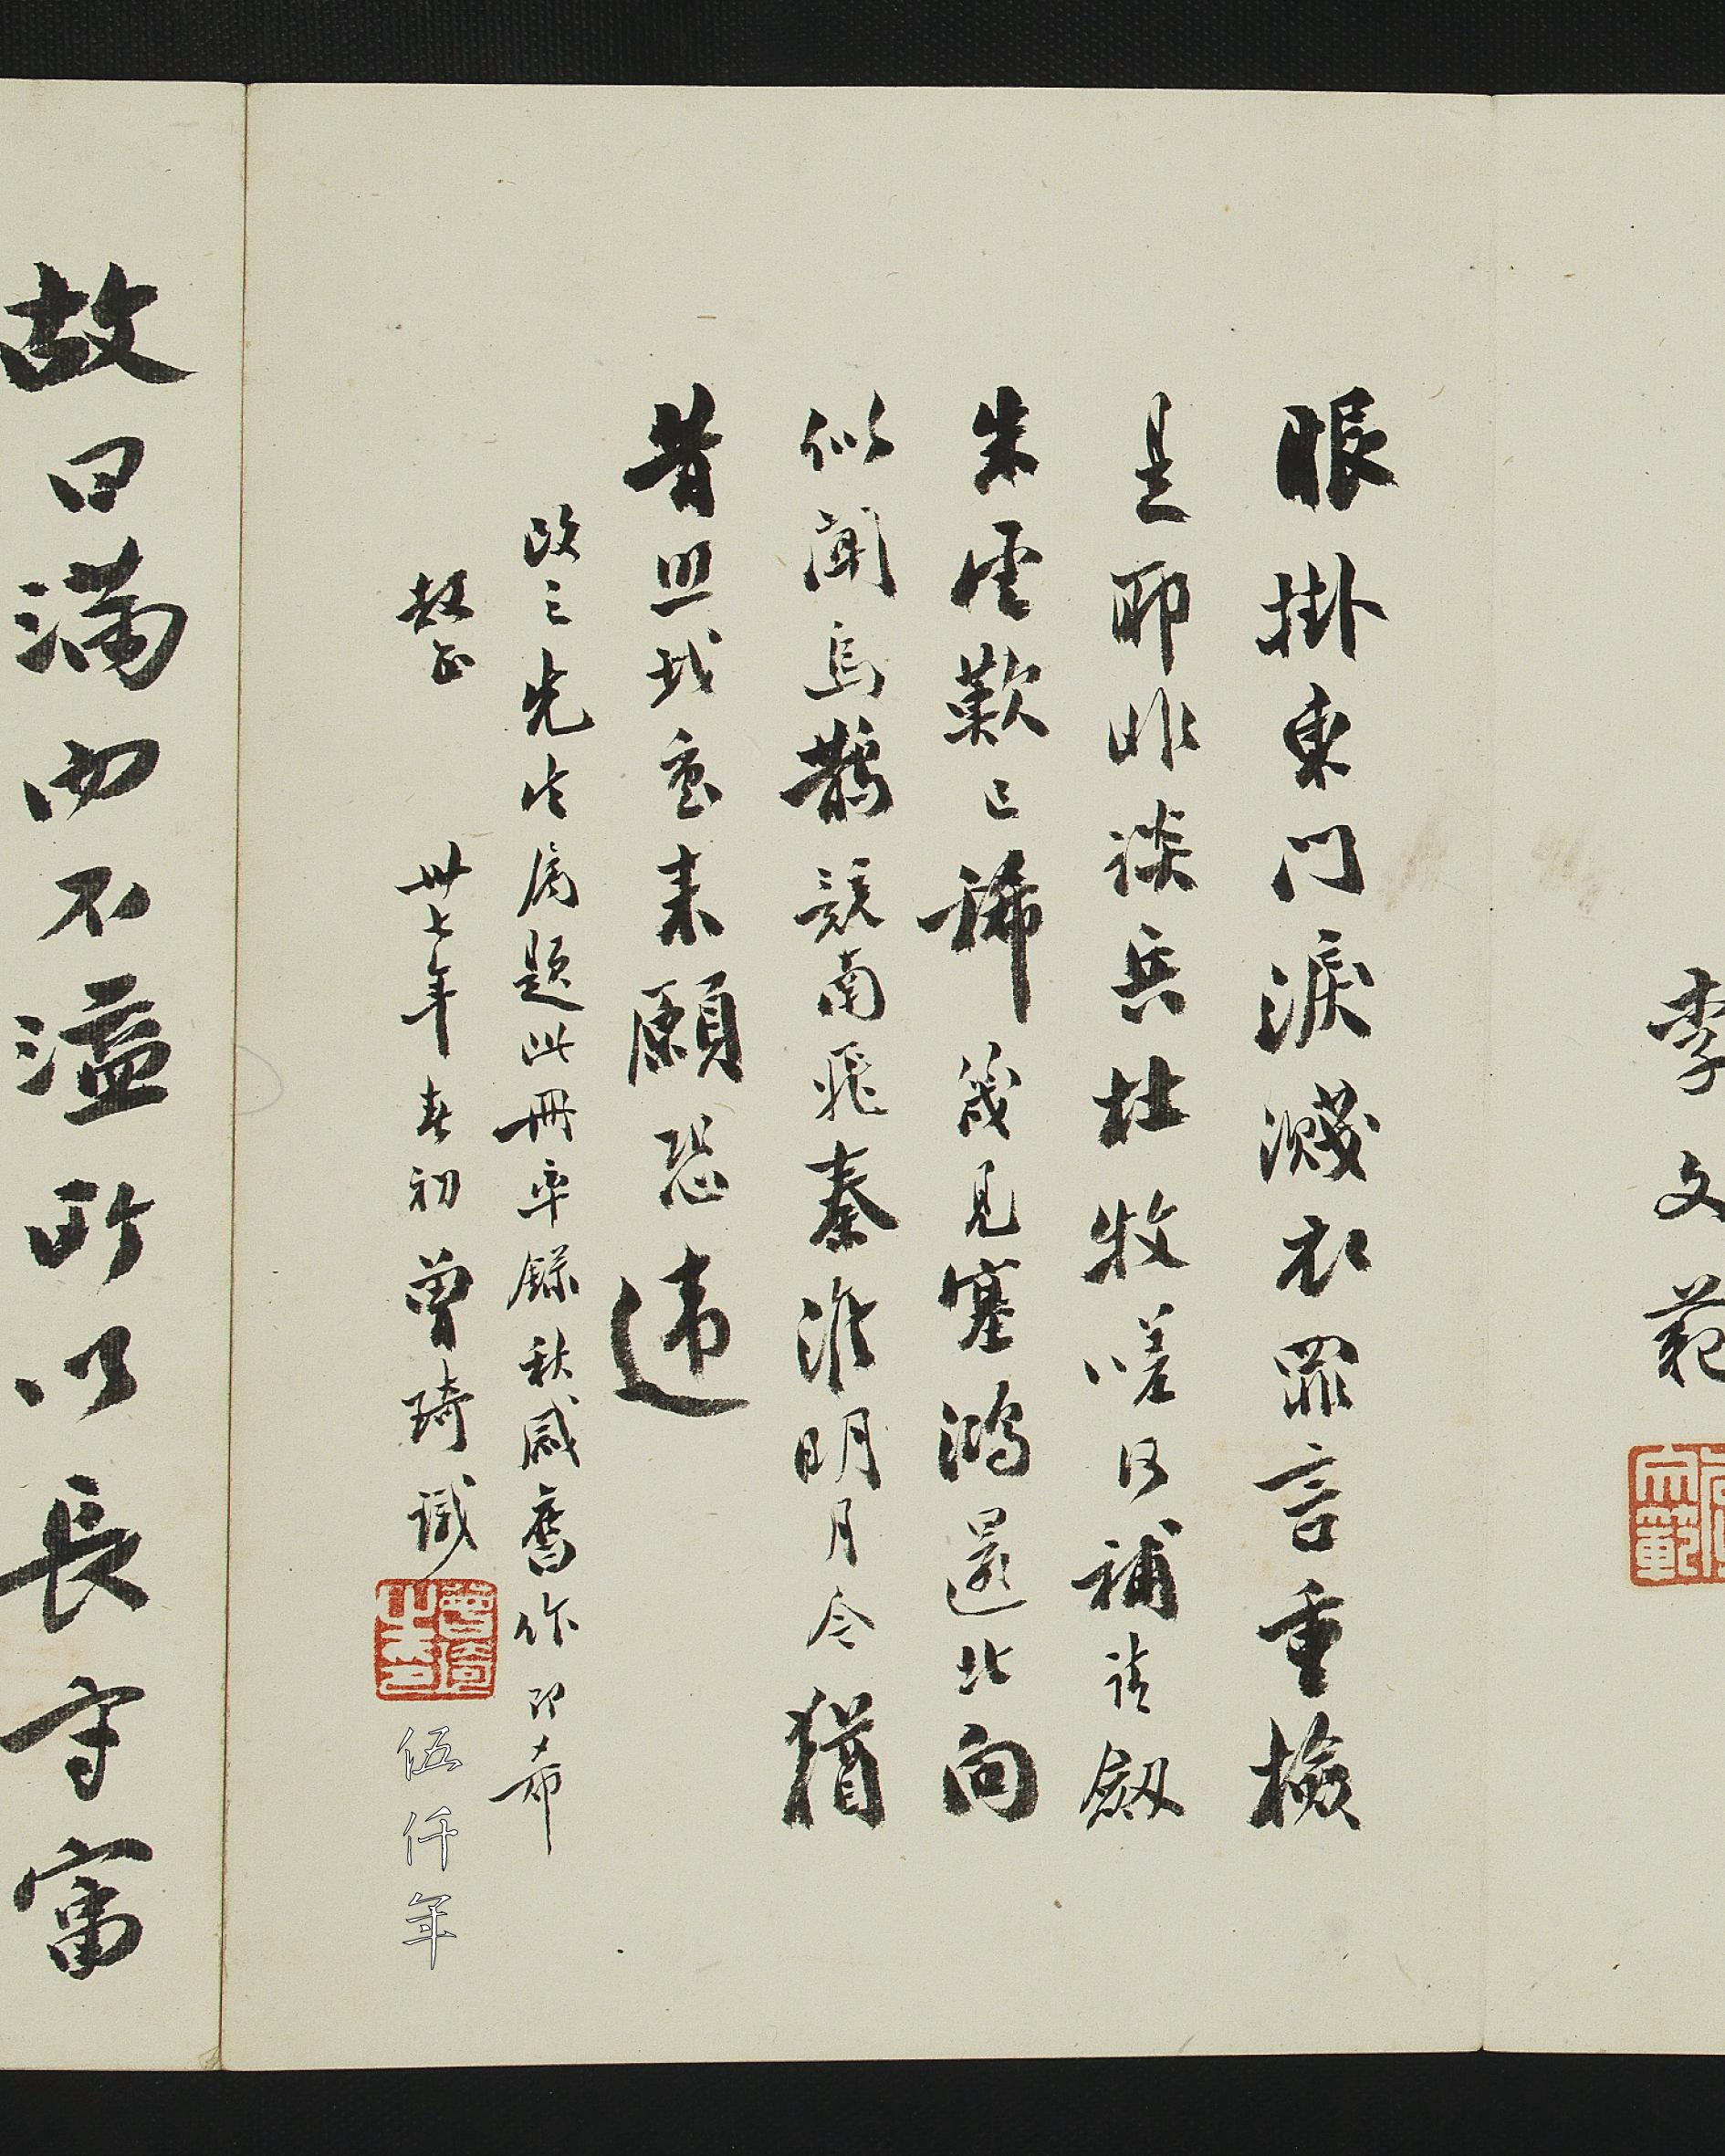 李文範
眼掛東門淚濺衣罪言重檢
是耶非談兵杜牧嗟何補請劍
朱雲歎已稀幾見塞鴻還北向
似聞烏鵲競南飛秦淮明月今猶
昔照我重來願恐違
政之先生屬題此冊率錄秋感舊作即希
教正
卅七年春初曾琦識
曾琦
伍仟年
故曰滿而不溢所以長守富